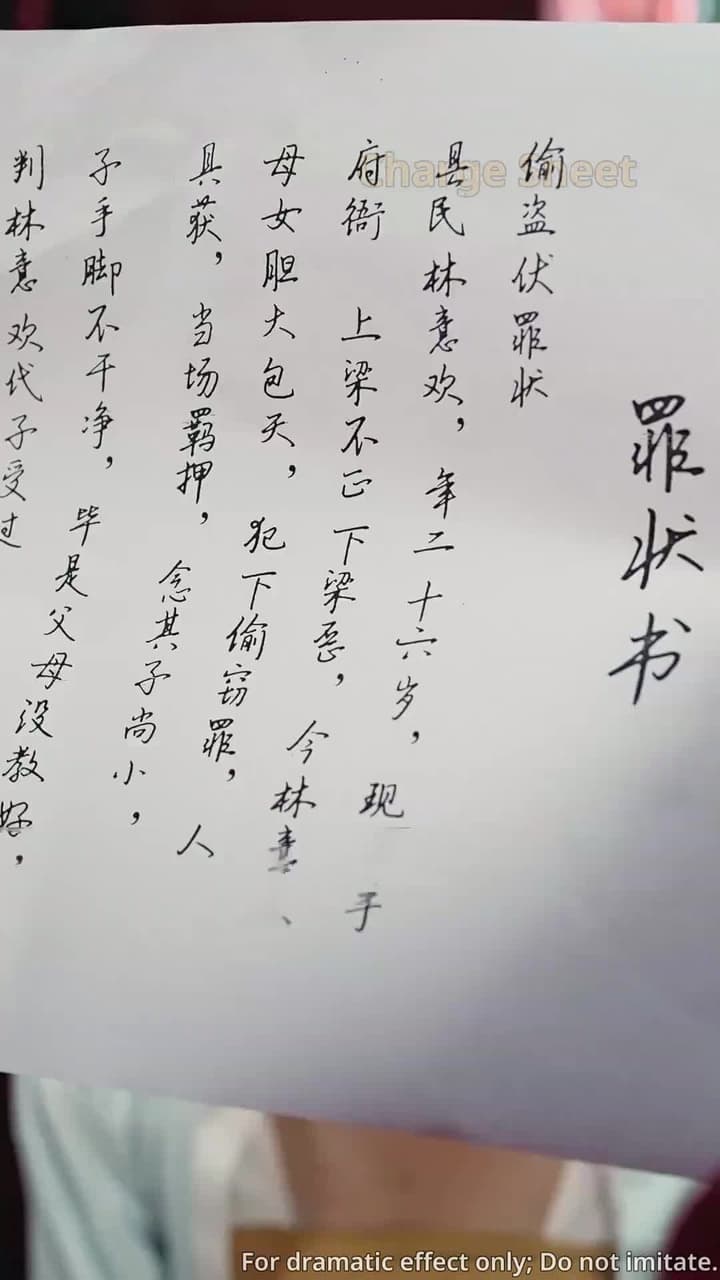 罪状书
偷盗伏罪状
县民林意欢，年二十六岁，现于
府衙 上梁不正下梁恶，今林意、
母女胆大包天，犯下偷窃罪，人
具获，当场羁押，念其子尚小，
子手脚不干净，毕是父母没教好，
判林意欢代子受过
Charge Sheet
For dramatic effect only; Do not imitate.